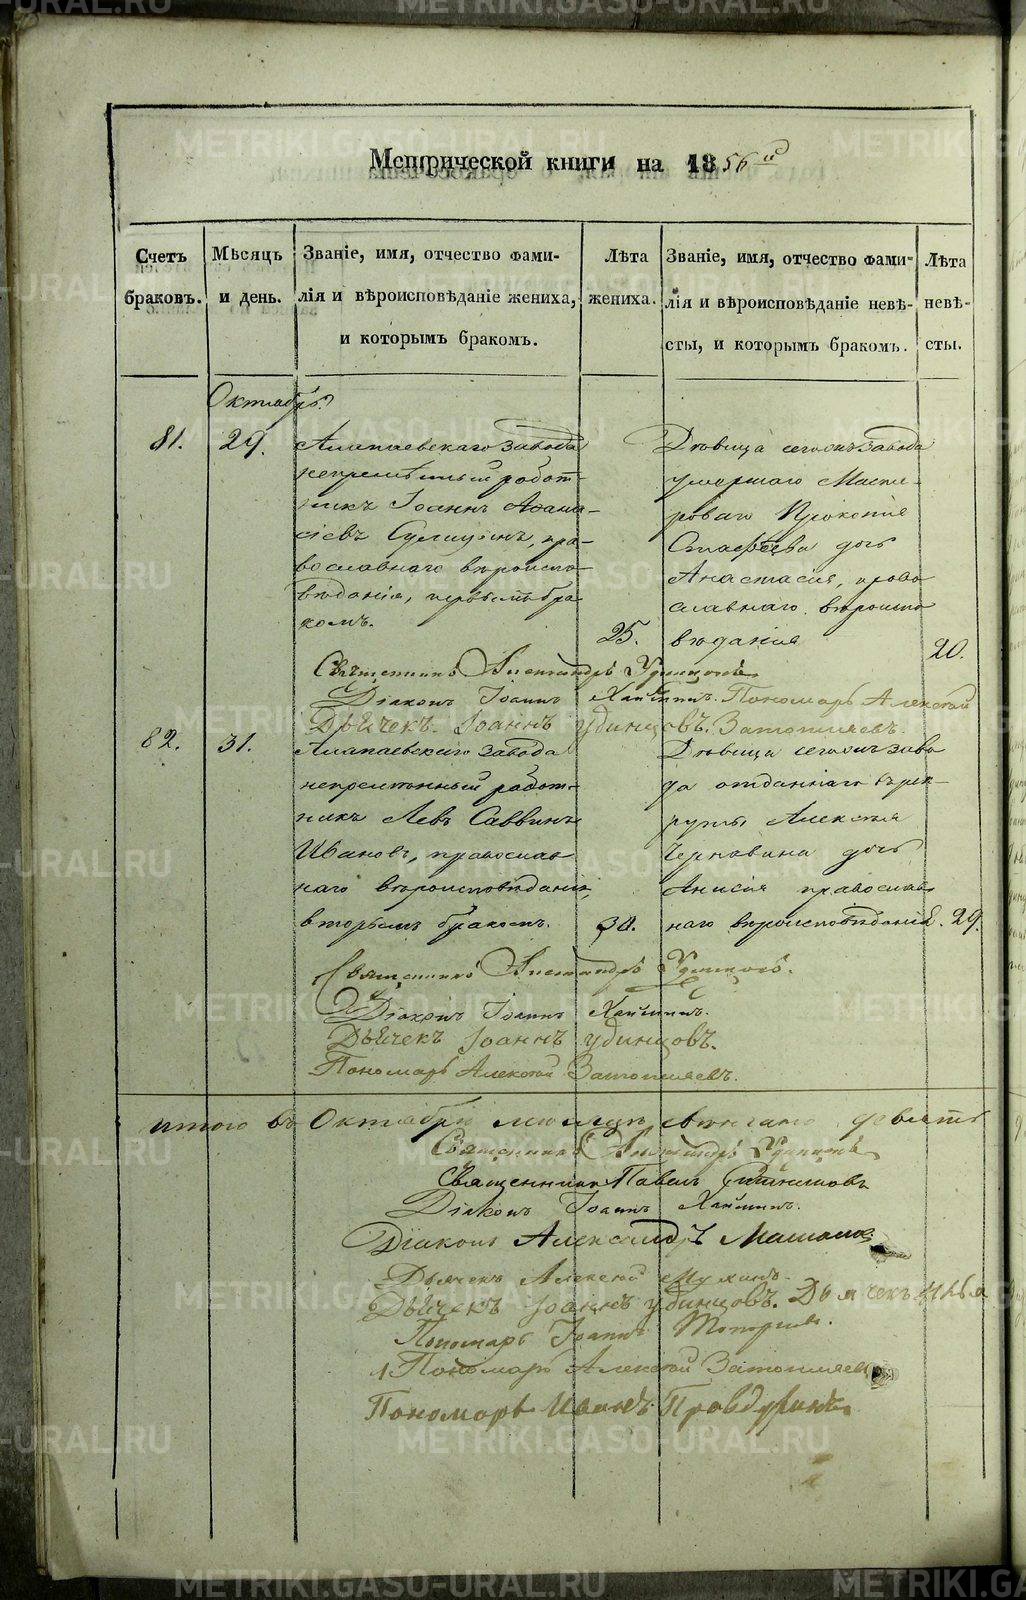 Метрической книги на 1856й
Счетъ браковъ.
Мѣсяцъ и день.
Званіе, имя, отчество фами-
лія и вѣроисповѣданіе жениха,
и которымъ бракомъ.
Лѣта жениха.
Званіе, имя, отчество фами-
лія и вѣроисповѣданіе невѣ-
сты, и которымъ бракомъ.
Лѣта невѣ-
сты.
Октябрь.
81.
29.
Алапаевскаго завода
непремѣнный работ-
никъ Іоаннъ Аѳана-
сіевъ, пра-
вославнаго вѣроиспо-
вѣданія, первымъ бра
комъ.
25.
Дѣвица сегожъ завода
умершаго Масте-
роваго Прокопія
дочь
Анастасія, право
славнаго вѣроиспо
вѣданія
20.
Священникъ Александръ Удинцовъ
Діаконъ Іоаннъ Пономарь Алексѣй
Дьячекъ Іоаннъ Удинцовъ. Затопляевъ.
82.
31.
Алапаевскаго завода
непремѣнный работ-
никъ Левъ Саввинъ
Ивановъ, православ
наго вѣроисповѣданія,
вторымъ бракомъ.
30.
Дѣвица сегожъ заво
да отданнаго въ рек-
руты Алексѣя
дочь
Анисія православ
наго вѣроисповѣданія.
29.
Священникъ Александръ Удинцовъ.
Діаконъ Іоаннъ
Дьячекъ Іоаннъ Удинцовъ.
Пономарь Алексѣй Затопляевъ.
итого въ Октябрѣ мѣсяцѣ вѣнчано девять
Священникъ Александръ Удинцовъ
Священникъ Павелъ
Діаконъ Іоаннъ
Діаконъ Александръ
Дьячекъ Алексѣй Мухинъ.
Дьячекъ Іоаннъ Удинцовъ. Дьячекъ Илья
Пономарь Іоаннъ
Пономарь Алексѣй Затопляевъ
Пономарь Иванъ Правдухинъ.
METRIKI.GASO-URAL.RU